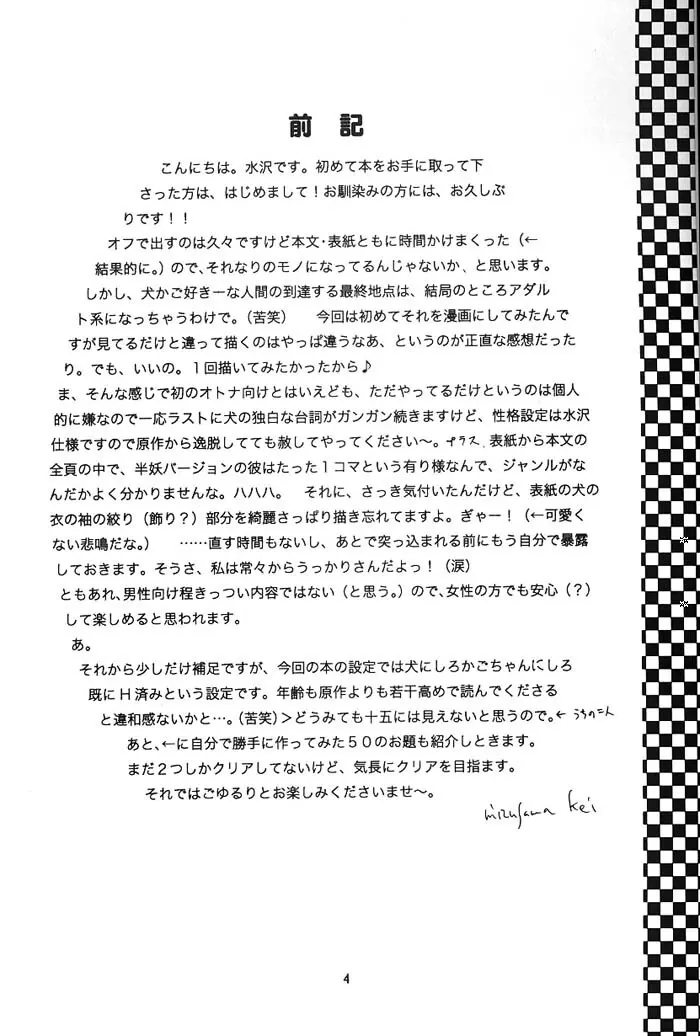 前 記
こんにちは。水沢です。初めて本をお手に取って下
さった方は、はじめまして！お馴染みの方には、お久しぶ
りです！！
オフで出すのは久々ですけど本文・表紙ともに時間かけまくった（←
結果的に。）ので、それなりのモノになってるんじゃないか、と思います。
しかし、犬かご好きーな人間の到達する最終地点は、結局のところアダル
ト系になっちゃうわけで。（苦笑） 今回は初めてそれを漫画にしてみたんで
すが見てるだけと違って描くのはやっぱ違うなあ、というのが正直な感想だった
り。でも、いいの。１回描いてみたかったから♪
ま、そんな感じで初のオトナ向けとはいえども、ただやってるだけというのは個人
的に嫌なので一応ラストに犬の独白な台詞がガンガン続きますけど、性格設定は水沢
仕様ですので原作から逸脱してても赦してやってください〜。プラス、表紙から本文の
全頁の中で、半妖バージョンの彼はたった１コマという有り様なんで、ジャンルがな
んだかよく分かりませんな。ハハハ。 それに、さっき気付いたんだけど、表紙の犬の
衣の袖の絞り（飾り？）部分を綺麗さっぱり描き忘れてますよ。ぎゃー！（←可愛く
ない悲鳴だな。） ……直す時間もないし、あとで突っ込まれる前にもう自分で暴露
しておきます。そうさ、私は常々からうっかりさんだよっ！（涙）
ともあれ、男性向け程きっつい内容ではない（と思う。）ので、女性の方でも安心（？）
して楽しめると思われます。
あ。
それから少しだけ補足ですが、今回の本の設定では犬にしろかごちゃんにしろ
既にＨ済みという設定です。年齢も原作よりも若干高めで読んでくださる
と違和感ないかと…。（苦笑）＞どうみても十五には見えないと思うので。← うちの二人
あと、←に自分で勝手に作ってみた５０のお題も紹介しときます。
まだ２つしかクリアしてないけど、気長にクリアを目指ます。
それではごゆるりとお楽しみくださいませ〜。
Mizusawa Kei
4